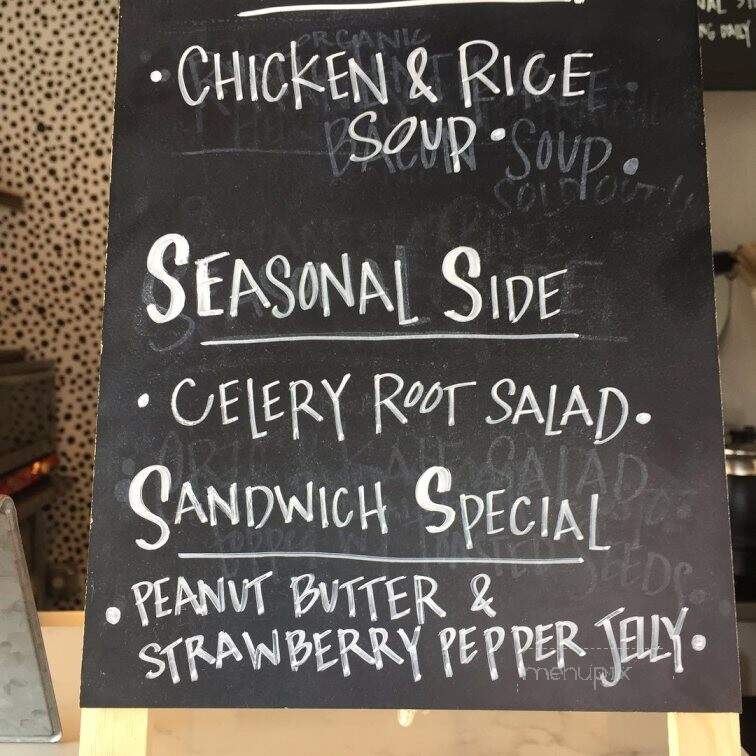 • CHICKEN & RICE
SOUP •
BACON SOUP •
SOLD OUT
SEASONAL SIDE
• CELERY ROOT SALAD •
SANDWICH SPECIAL
• PEANUT BUTTER &
STRAWBERRY PEPPER JELLY •
menupix